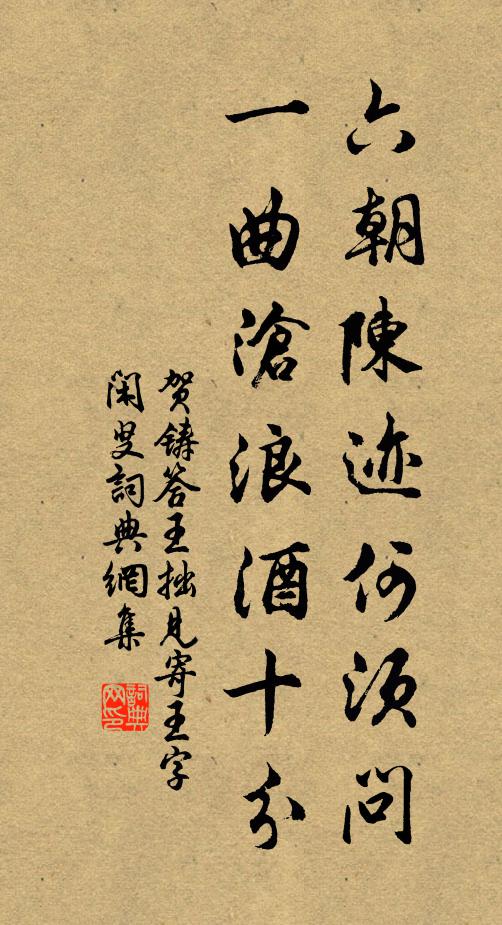 六朝陳迹何須問
一曲滄浪酒十分
贺鋳答王拙見寄王字
闲叟詞典網集
詞典网印